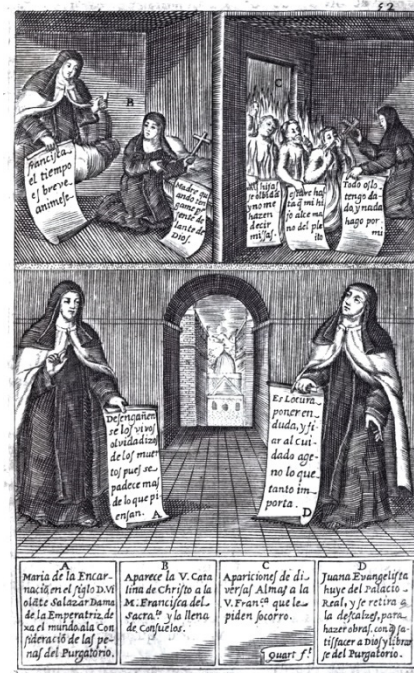 52
B
Francisca
el tiempo
es breve
animese-
Madre qu
ando ten
game pre
sente de
lante de
Dios.
C
Mis hijas
se olbidā
y no me
hazen
decir
misas.
estare ha
sta q̄ mi hi
jo alce ma
no del ple
ito
Todo oslo
tengo da
da, y nada
hago por
mi
Desengañen
se los vivos
olvidadizos
de los muer
tos pues se
padece mas
de lo que pi
ensan.
A
Es Locura
poner en
duda, y fi
ar al cui
dado age
no lo que
tanto im
porta.
D
A
Maria de la Encar-
nació, en el siglo D. Vi
olāte Salazar Dama
de la Emperatriz, de
xa el mundo, a la Con
sideració de las pe
nas del Purgatorio.
B
Aparece la V. Cata
lina de Christo a la
M. Francisca del
Sacra.to y la llena
de Consuelos.
C
Apariciones de di
versas Almas a la
V. Fran.ca que le
piden socorro.
Quart f.t
D
Juana Evangelista
huye del Palacio
Real, y se retira a
la descalzes, para
hazer obras, con q̄ sa-
tisfacer a Dios y librar
se del Purgatorio.